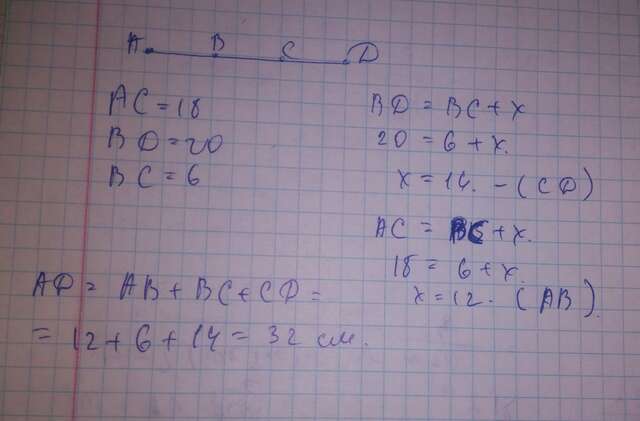 A B C D
AC = 18
BD = 20
BC = 6
BD = BC + x
20 = 6 + x.
x = 14. - (CD)
AC = BC + x.
18 = 6 + x.
x = 12. (AB).
AD = AB + BC + CD =
= 12 + 6 + 14 = 32 см.